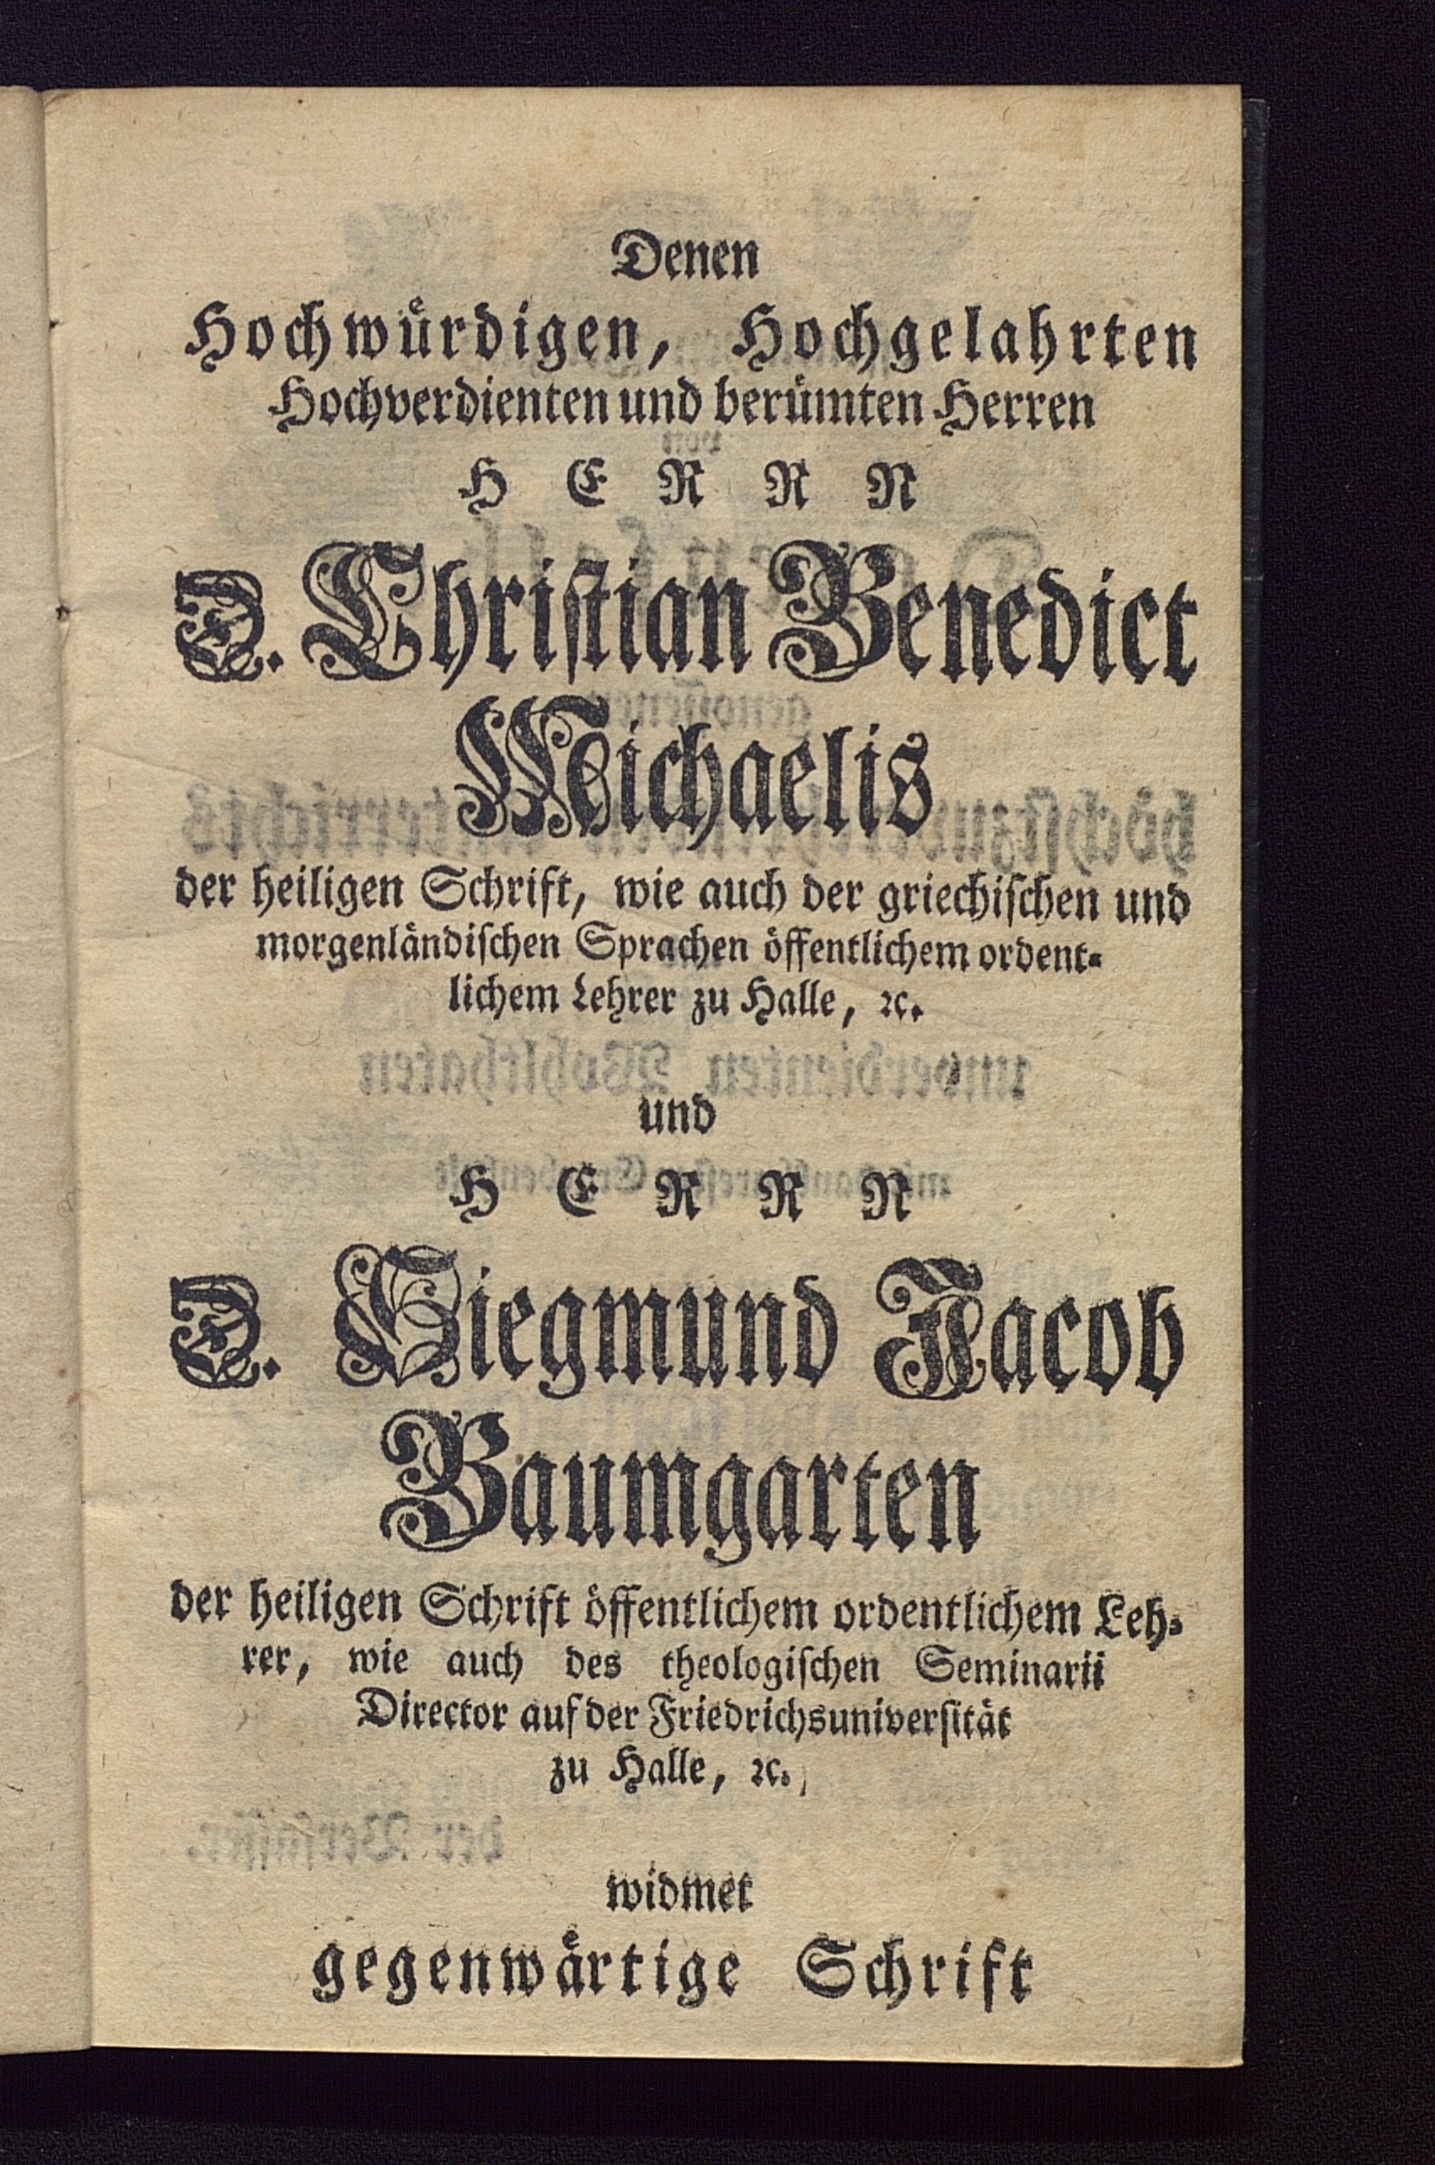 Denen
Hochwürdigen, Hochgelahrten
Hochverdienten und berümten Herren
HERRN
D. Christian Benedict
Michaelis
der heiligen Schrift, wie auch der griechischen und
morgenländischen Sprachen öffentlichem ordent-
lichem Lehrer zu Halle, ꝛc.
und
HERRN
D. Siegmund Jacob
Baumgarten
der heiligen Schrift öffentlichem ordentlichem Leh-
rer, wie auch des theologischen Seminarii
Director auf der Friedrichsuniversität
zu Halle, ꝛc.
widmet
gegenwärtige Schrift